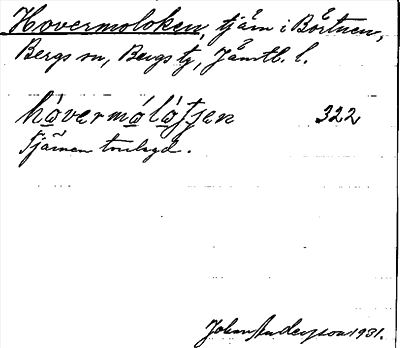 Hovermoloken, tjärn i Börtnen,
Bergs sn, Bergs tg, Jämtl. l.
håvermólåtjen 322
Tjärnen torrlagd.
Johan Anderson 1931.